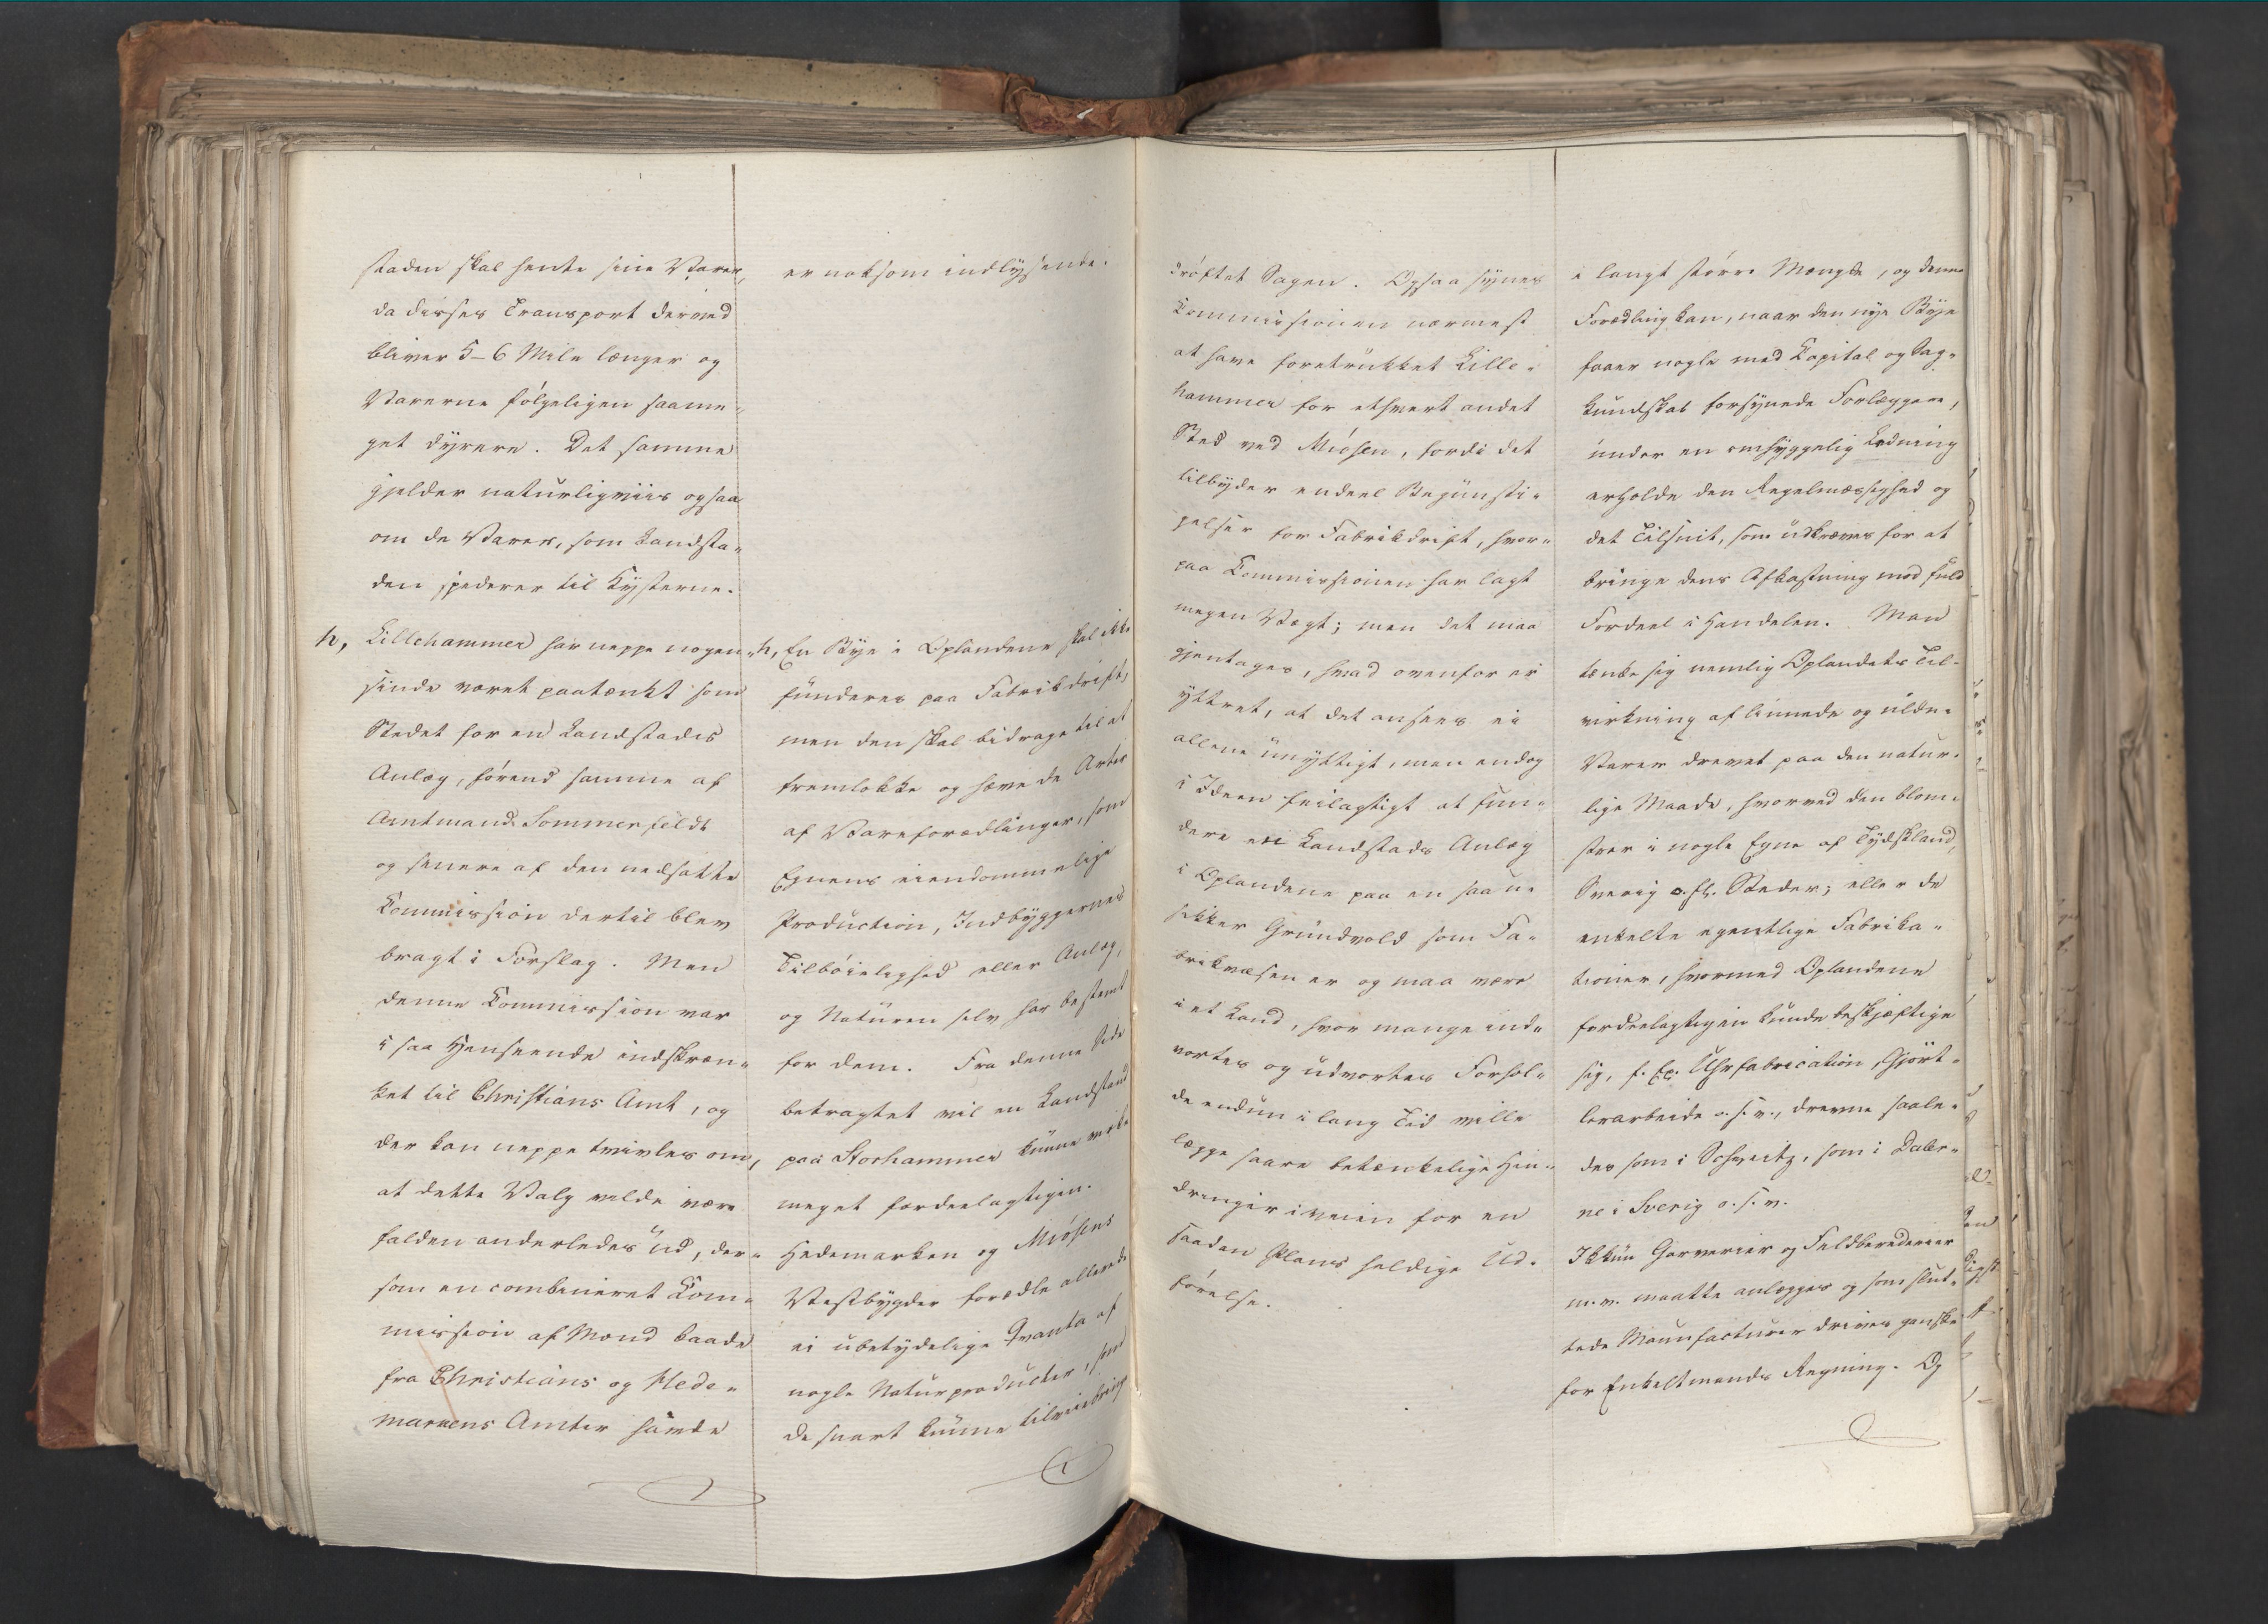 staden skal hente sine Varer,
da disses Transport derved
bliver 5–6 Mile længer og
Varerne følgeligen saame-
get dyrere. Det samme
gjelder naturligviis ogsaa
om de Varer, som Landsta-
den spederer til Kysterne.
h, Lillehammer har neppe nogen-
sinde været paatænkt som
Stedet for en Landstads
Anlæg, førend samme af
Amtmand Sommerfeldt
og senere af den nedsatte
Commission dertil blev
bragt i Forslag. Men
denne Commission var
i saa Henseende indskræn-
ket til Christians Amt, og
der kan neppe tvivles om,
at dette Valg vilde være
falden anderledes ud, der-
som en combineret Com-
mission af Mænd baade
fra Christians og Hede-
markens Amter havde
er noksom indlysende.
h, En Bye i Oplandene skal ikke
funderes paa Fabrikdrift,
men den skal bidrage til at
fremlokke og hæve de Arter
af Vareforædlinger, som
Egnens eiendommelige
Production, Indbyggernes
Tilbøielighed eller Anlæg,
og Naturen selv har bestemt
for dem. Fra denne Side
betragtet vil en Landstad
paa Storhammer kunne virke
meget fordeelagtigen.
Hedemarken og Miøsens
Vestbygder forædle allerede
ei ubetydelige Qvanta af
nogle Naturproducter, som
de snart kunne tilveiebringe
drøftet Sagen. Ogsaa synes
Commissionen nærmest
at have foretrukket Lille-
hammer for ethvert andet
Sted ved Miøsen, fordi det
tilbyder endeel Begunsti-
gelser for Fabrikdrift, hvor-
paa Commissionen har lagt
megen Vægt; men det maa
gjentages, hvad ovenfor er
yttret, at det ansees ei
allene unyttigt, men endog
i Ideen feilagtigt at fun-
dere en Landstads Anlæg
i Oplandene paa en saa u-
sikker Grundvold som Fa-
brikvæsen er og maa være
i et Land, hvor mange ind-
vortes og udvortes Forhol-
de endnu i lang Tid ville
lægge saare betænkelige Hin-
dringer i veien for en
saadan Plans heldige Ud-
førelse.
i langt større Mængde, og denne
Forædling kan, naar den nye Bye
faaer nogle med Capital og Sag-
kundskab forsynede Forlæggere,
under en omhyggelig Ledning
erholde den Regelmæssighed og
det Tilsnit, som udkræves for at
bringe dens Afkastning med fuld
Fordeel i Handelen. Man
tænke sig nemlig Oplandets Til-
virkning af linnede og uldne
Varer drevet paa den natur-
lige Maade, hvorved den blom-
strer i nogle Egne af Tydskland,
Sverig o. fl. Steder; eller de
enkelte egentlige Fabrika-
tioner, hvormed Oplandene
fordeelagtigen kunde beskjæftige
sig, f. Ex. Uhrfabrication, Gjørt-
lerarbeide o. s. v., drevne saale-
des som i Schweitz, som i Daler-
ne i Sverig o. s. v.
Ikkun Garverier og Feldberederier
m. v. maatte anlægges og som slut-
tede Manufacturer drives ganske
for Enkeltmands Regning. Og